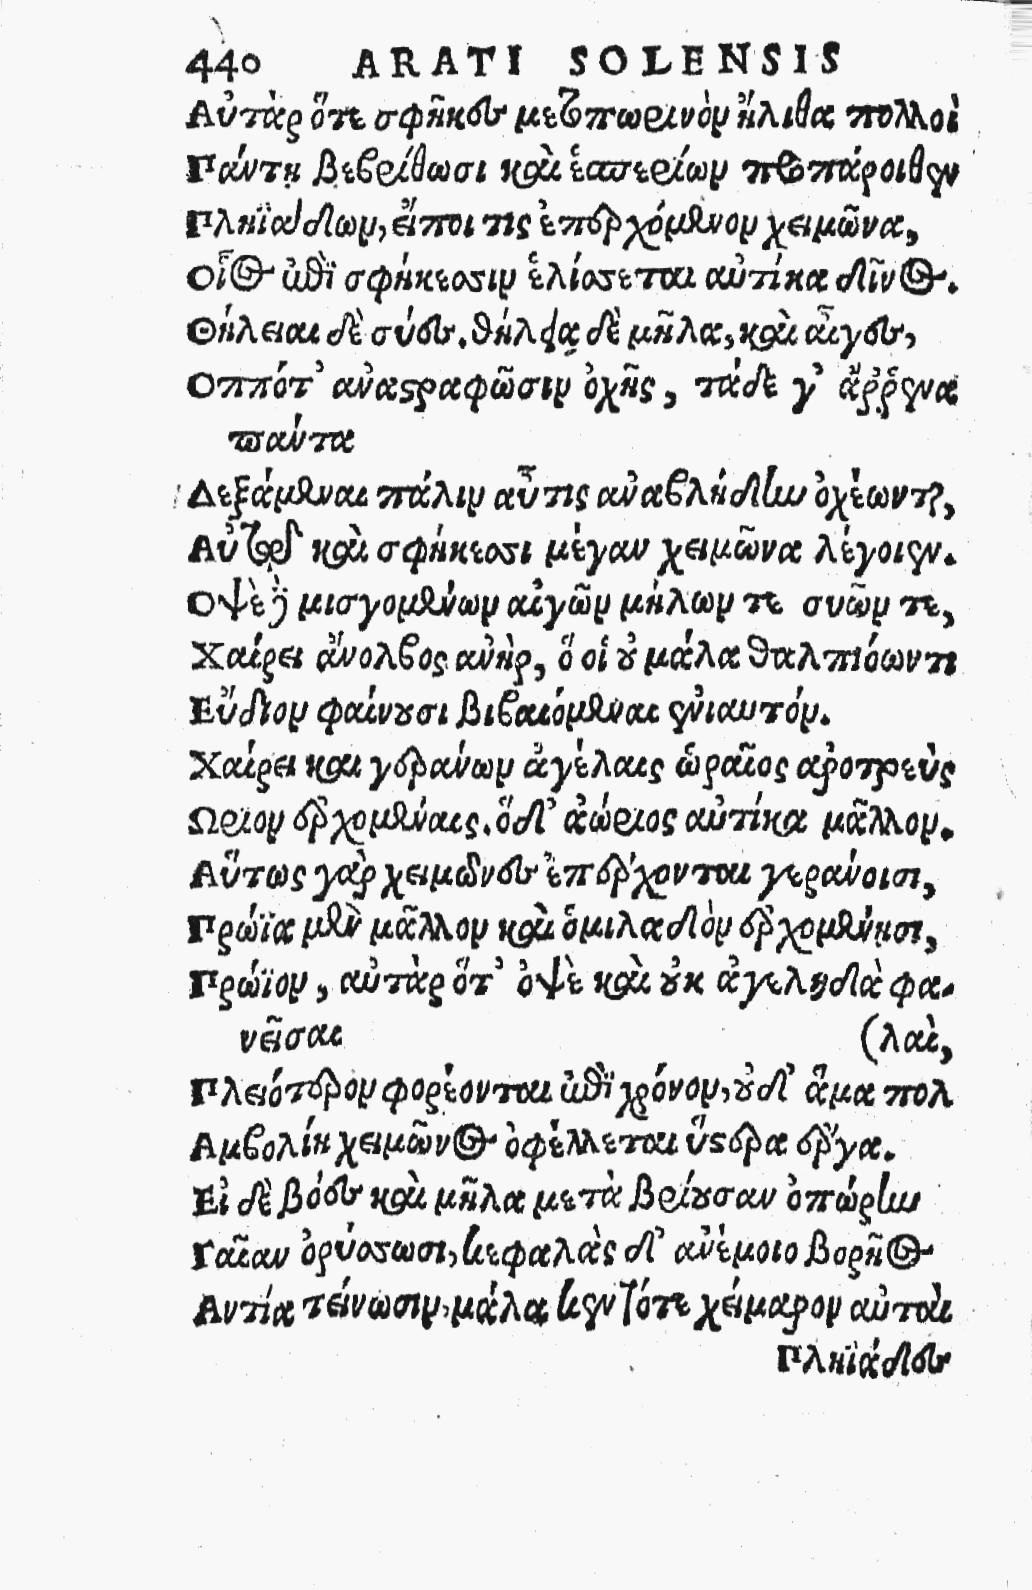 440 ARATI SOLENSIS
Αὐτὰρ ὅτε σφῆκες μετοπωρινὸν ἤλιθα πολλοὶ
Πάντῃ βεβρίθωσι καὶ ἑσπερίων προπάροιθεν
Πληϊάδων, εἴποι τις ἐπερχόμενον χειμῶνα,
Οἷος ἐπὶ σφήκεσσιν ἑλίσσεται αὐτίκα δῖνος.
Θήλειαι δὲ σύες, θήλεια δὲ μῆλα, καὶ αἶγες,
Οππότ' ἀναστραφῶσιν ὀχῆς, τάδε γ' ἄῤῥενα
πάντα
Δεξάμεναι πάλιν αὖτις ἀναβλήδην ὀχέωνται,
Αὔτως καὶ σφήκεσσι μέγαν χειμῶνα λέγοιεν.
Οψὲ δὲ μισγομένων αἰγῶν μήλων τε συῶν τε,
Χαίρει ἄνολβος ἀνὴρ, ὅ οἱ οὐ μάλα θαλπιόωντι
Εὔδιον φαίνουσι βιβαιόμεναι ἐνιαυτόν.
Χαίρει καὶ γεράνων ἀγέλαις ὡραῖος ἀροτρεὺς
Ωριον ἐρχομέναις, ὅδ' ἀώριος αὐτίκα μᾶλλον.
Αὕτως γὰρ χειμῶνες ἐπέρχονται γεράνοισι,
Πρώϊα μὲν μᾶλλον καὶ ὁμιλαδὸν ἐρχομένῃσι,
Πρώϊον, αὐτὰρ ὅτ' ὀψὲ καὶ οὐκ ἀγεληδὰ φα-
νεῖσαι (λαὶ,
Πλειότερον φορέονται ἐπὶ χρόνον, οὐδ' ἅμα πολ
Αμβολίῃ χειμῶνος ὀφέλλεται ὕστερα ἔργα.
Εἰ δὲ βόες καὶ μῆλα μετὰ βρίουσαν ὀπώρην
Γαῖαν ὀρύσσωσι, κεφαλὰς δ' ἀνέμοιο βορῆος
Αντία τείνωσιν, μάλα κεν τότε χείμαρον αὐταὶ
Πληϊάδες